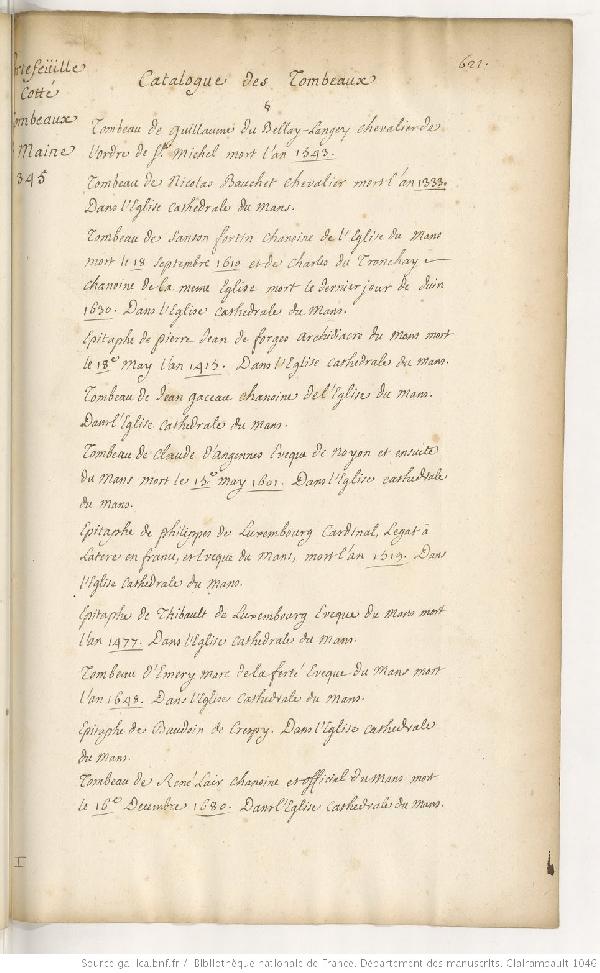 621.
portefeüille
Cotté
Tombeaux
Maine
345
Catalogue des Tombeaux
Tombeau de Guillaume du Bellay-Langey chevalier de
l'ordre de St. Michel mort l'an 1543.
Tombeau de Nicolas Bauchet chevalier mort l'an 1333.
Dans l'Eglise Cathedrale du Mans.
Tombeau de Sanson fortin chanoine de l'Eglise du Mans
mort le 18 Septembre 1610 et de Charles du Tronchay
chanoine de la meme Eglise mort le dernier jour de Juin
1630. Dans l'Eglise Cathedrale du Mans.
Epitaphe de pierre Jean de forges Archidiacre du Mans mort
le 18e May l'an 1413. Dans l'Eglise Cathedrale du Mans.
Tombeau de Jean gaceau chanoine de l'Eglise du Mans.
Dans l'Eglise Cathedrale du Mans.
Tombeau de Claude d'Angennes Eveque de Noyon et ensuite
du Mans mort le 15e May 1601. Dans l'Eglise cathedrale
du Mans.
Epitaphe de philippes de Luxembourg Cardinal, Legat à
Latere en france, et Eveque du Mans, mort l'an 1519. Dans
l'Eglise Cathedrale du Mans.
Epitaphe de Thibault de Luxembourg Eveque du Mans mort
l'an 1477. Dans l'Eglise Cathedrale du Mans.
Tombeau d'Emery marc de la ferté Eveque du Mans mort
l'an 1648. Dans l'Eglise Cathedrale du Mans.
Epitaphe de Baudoin de Crespy. Dans l'Eglise Cathedrale
du Mans.
Tombeau de René Lair chanoine et official du Mans mort
le 16e Decembre 1680. Dans l'Eglise Cathedrale du Mans.
Source gallica.bnf.fr / Bibliothèque nationale de France. Département des manuscrits. Clairambault 1046